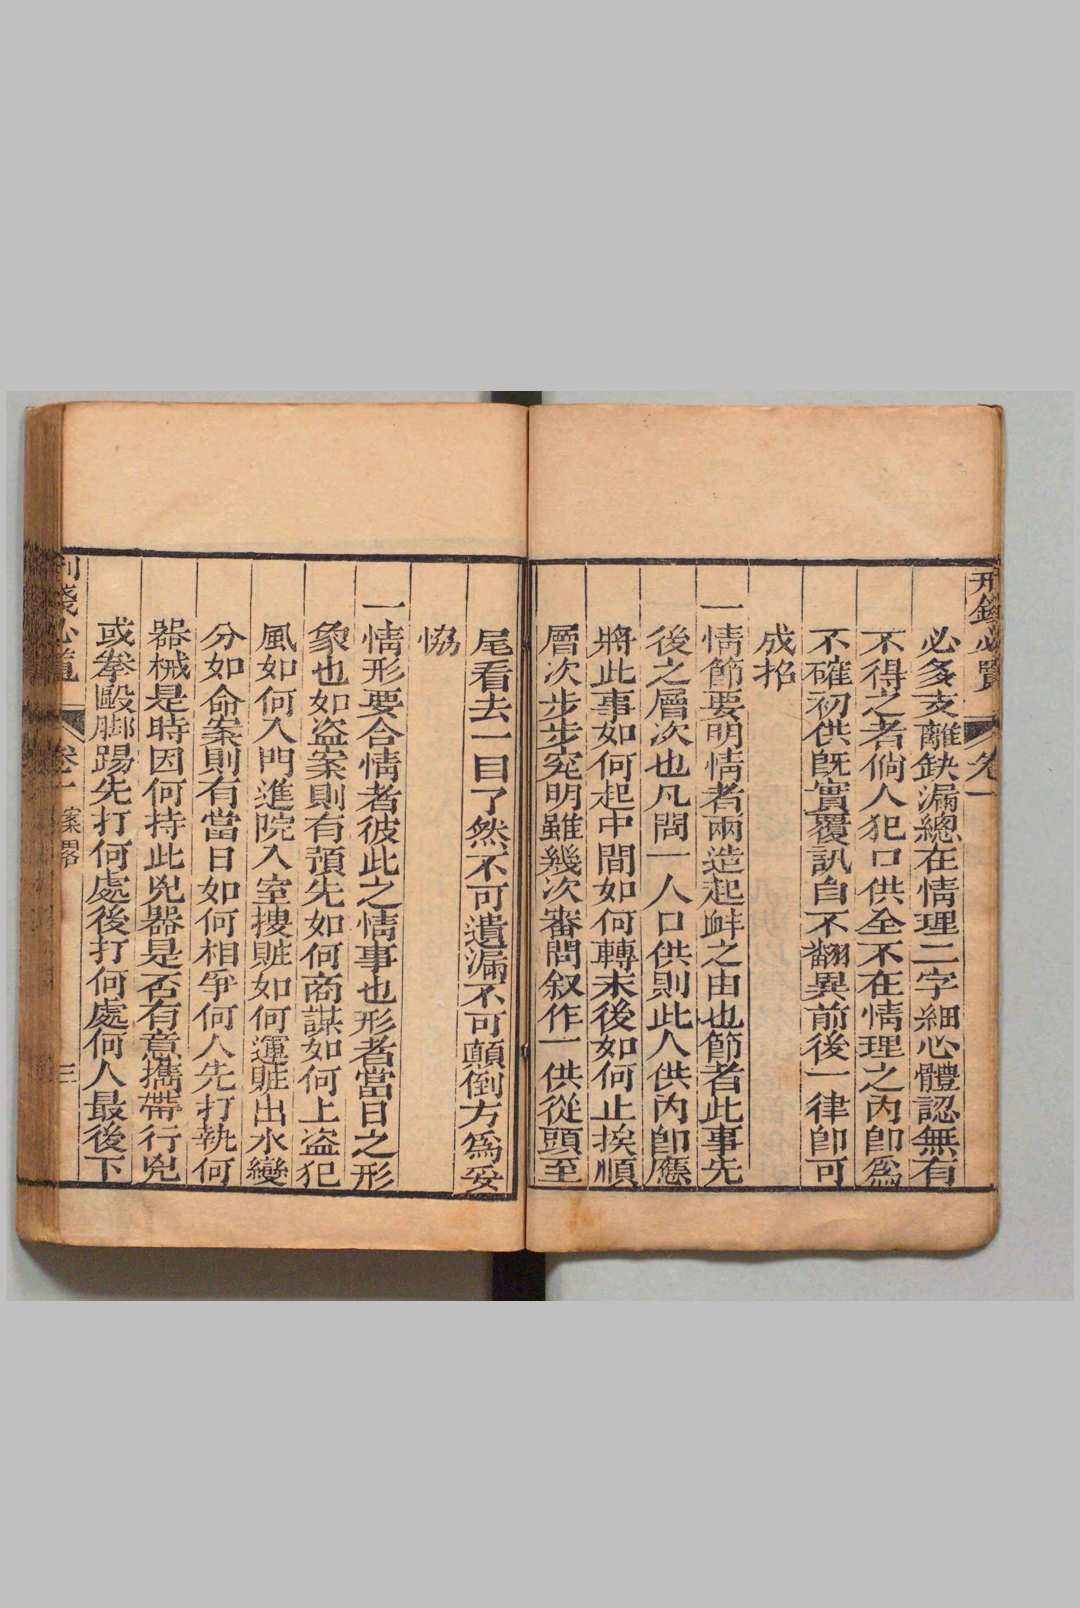 必多支離缺漏總在情理二字細心體認無有
不得之者倘人犯口供全不在情理之內即為
不確初供既實覆訊自不翻異前後一律即可
成招
一情節要明情者兩造起衅之由也節者此事先
後之層次也凡問一人口供則此人供內即應
將此事如何起中間如何轉末後如何止挨順
層次步步究明雖幾次審問叙作一供從頭至
尾看去一目了然不可遺漏不可顛倒方為妥
恊
一情形要合情者彼此之情事也形者當日之形
象也如盜案則有預先如何商謀如何上盜犯
風如何入門進院入室搜賍如何運賍出水變
分如命案則有當日如何相爭何人先打執何
器械是時因何持此兇器是否有意擕帶行兇
或拳毆脚踢先打何處後打何處何人最後下
卷一 案畧 三
卷一